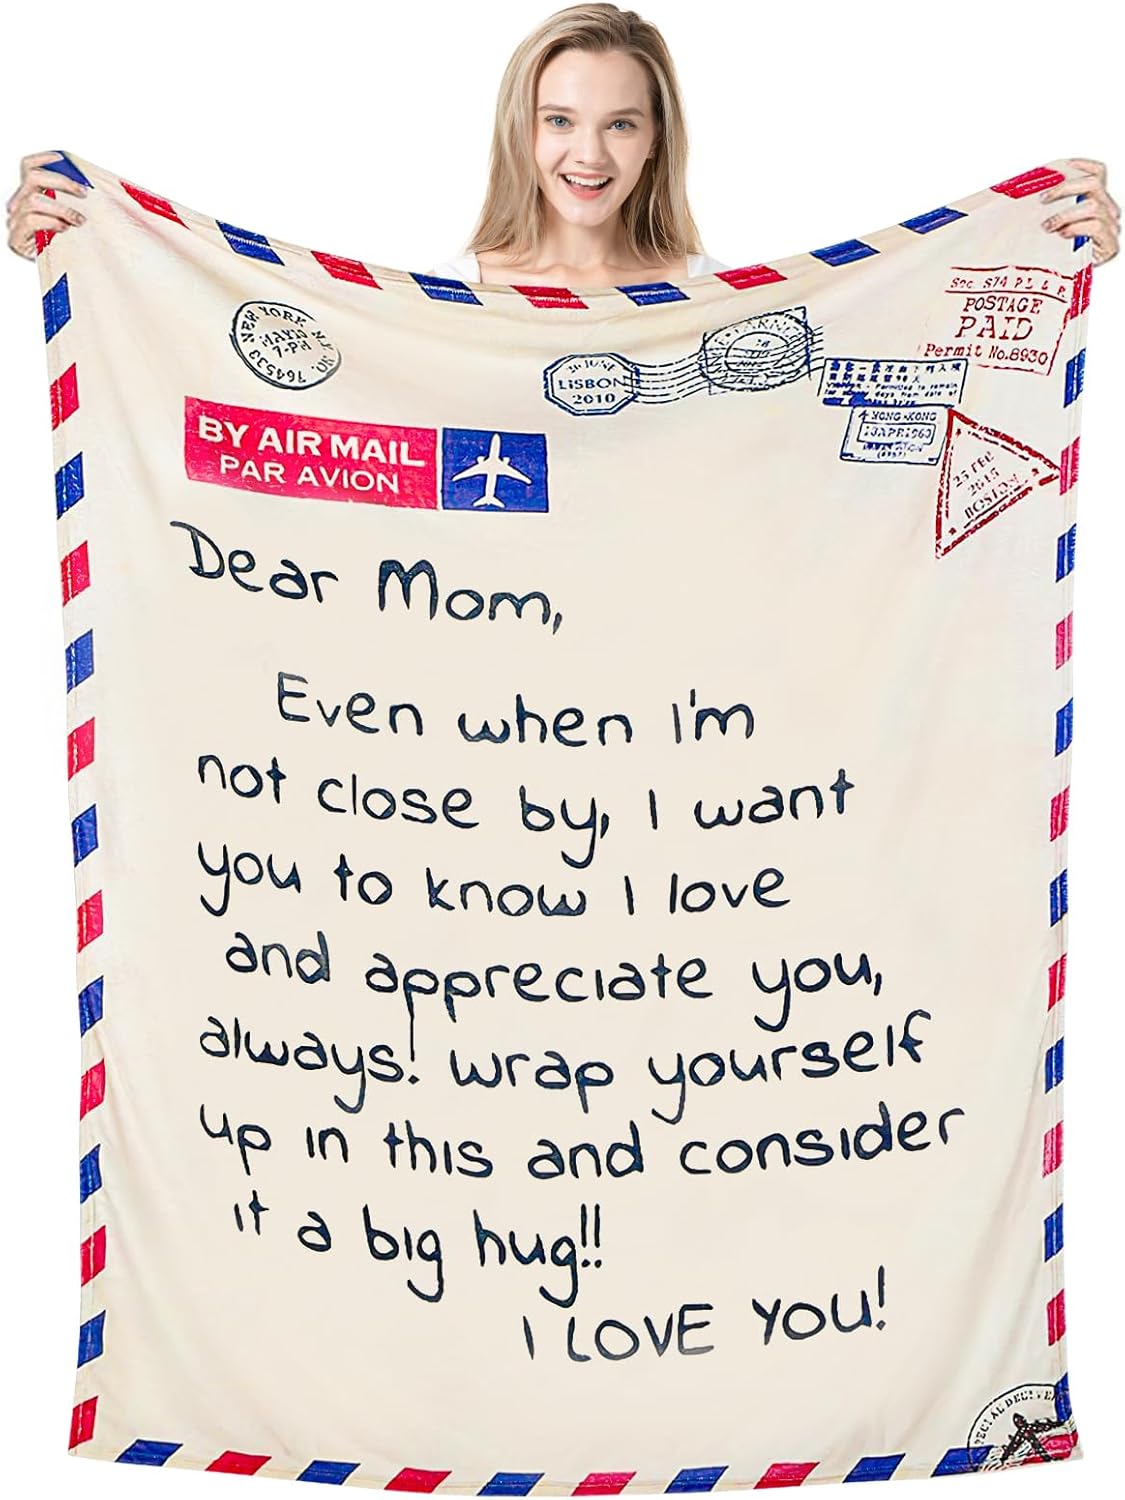 NEW YORK, N.Y.
MAY 13
7-PM
764533
LISBON
2010
Soc. S74 P.L & R.
POSTAGE
PAID
Permit No.8930
HONG KONG
13APR1963
25 FEB
2015
BOSTON
BY AIR MAIL
PAR AVION
Dear Mom,
Even when I'm
not close by, I want
you to know I love
and appreciate you,
always! wrap yourself
up in this and consider
it a big hug!!
I LOVE YOU!